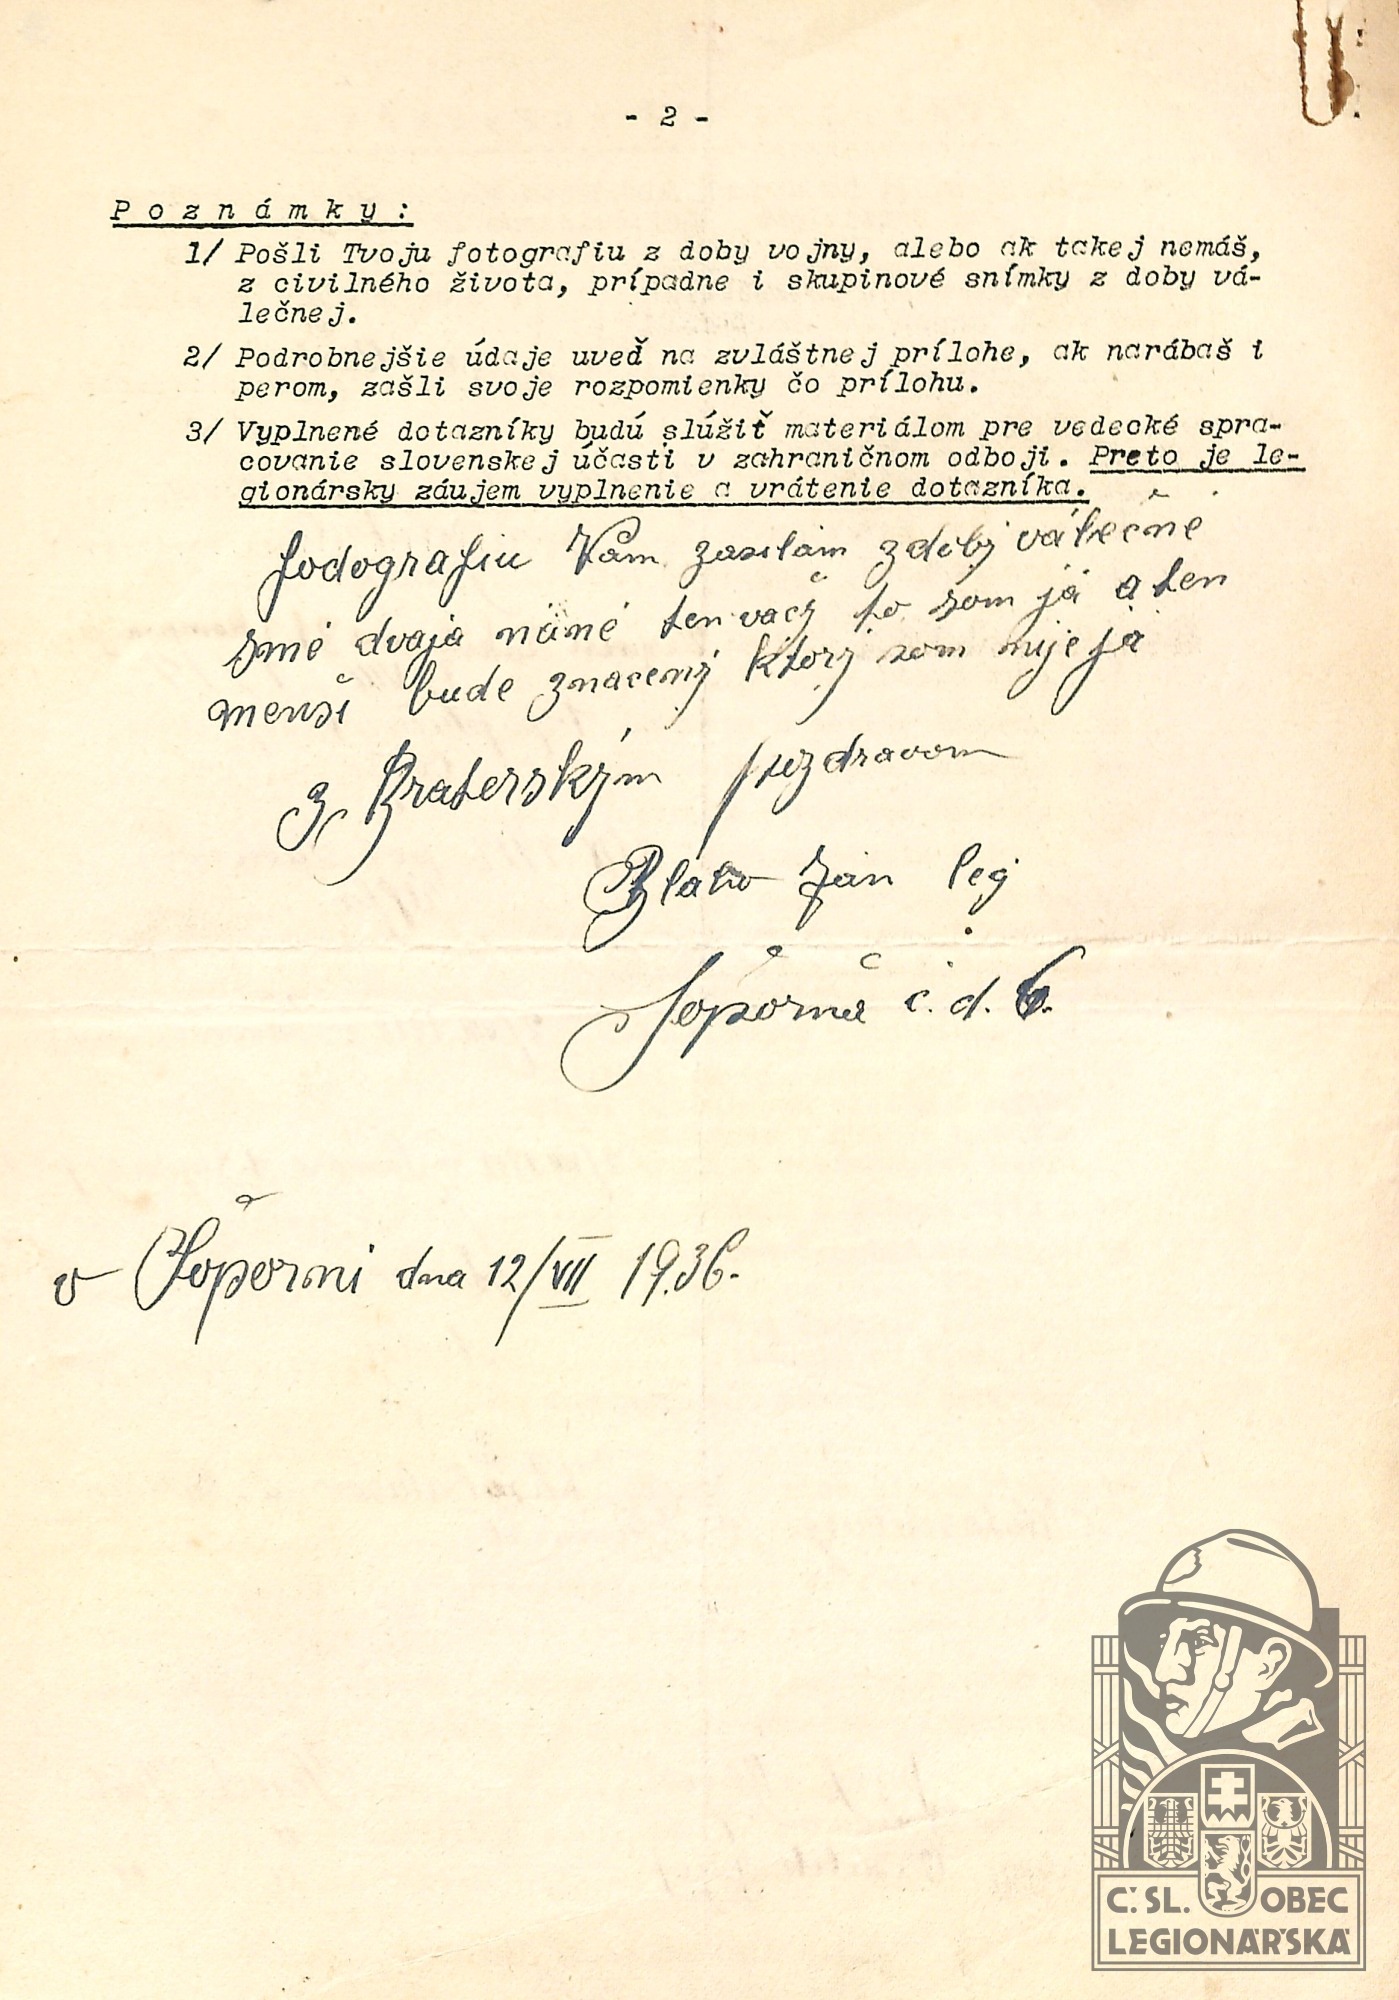 - 2 -
P o z n á m k y :
1/ Pošli Tvoju fotografiu z doby vojny, alebo ak takej nemáš,
z civilného života, prípadne i skupinové snímky z doby vá-
lečnej.
2/ Podrobnejšie údaje uveď na zvláštnej prílohe, ak narábaš i
perom, zašli svoje rozpomienky čo prílohu.
3/ Vyplnené dotazníky budú slúžiť materiálom pre vedecké spra-
covanie slovenskej účasti v zahraničnom odboji. Preto je le-
gionársky záujem vyplnenie a vrátenie dotazníka.
fodografiu Vám zasilám z dobj válečné
smé dvaja náné ten vačj to som já a ten
menší bude značený ktorý som nije já
z Braterským pozdravom
Blaho Ján leg
Šoporňa č. d. 6.
v Šoporni dna 12/VII 1936.
Č. SL. OBEC
LEGIONÁŘSKÁ